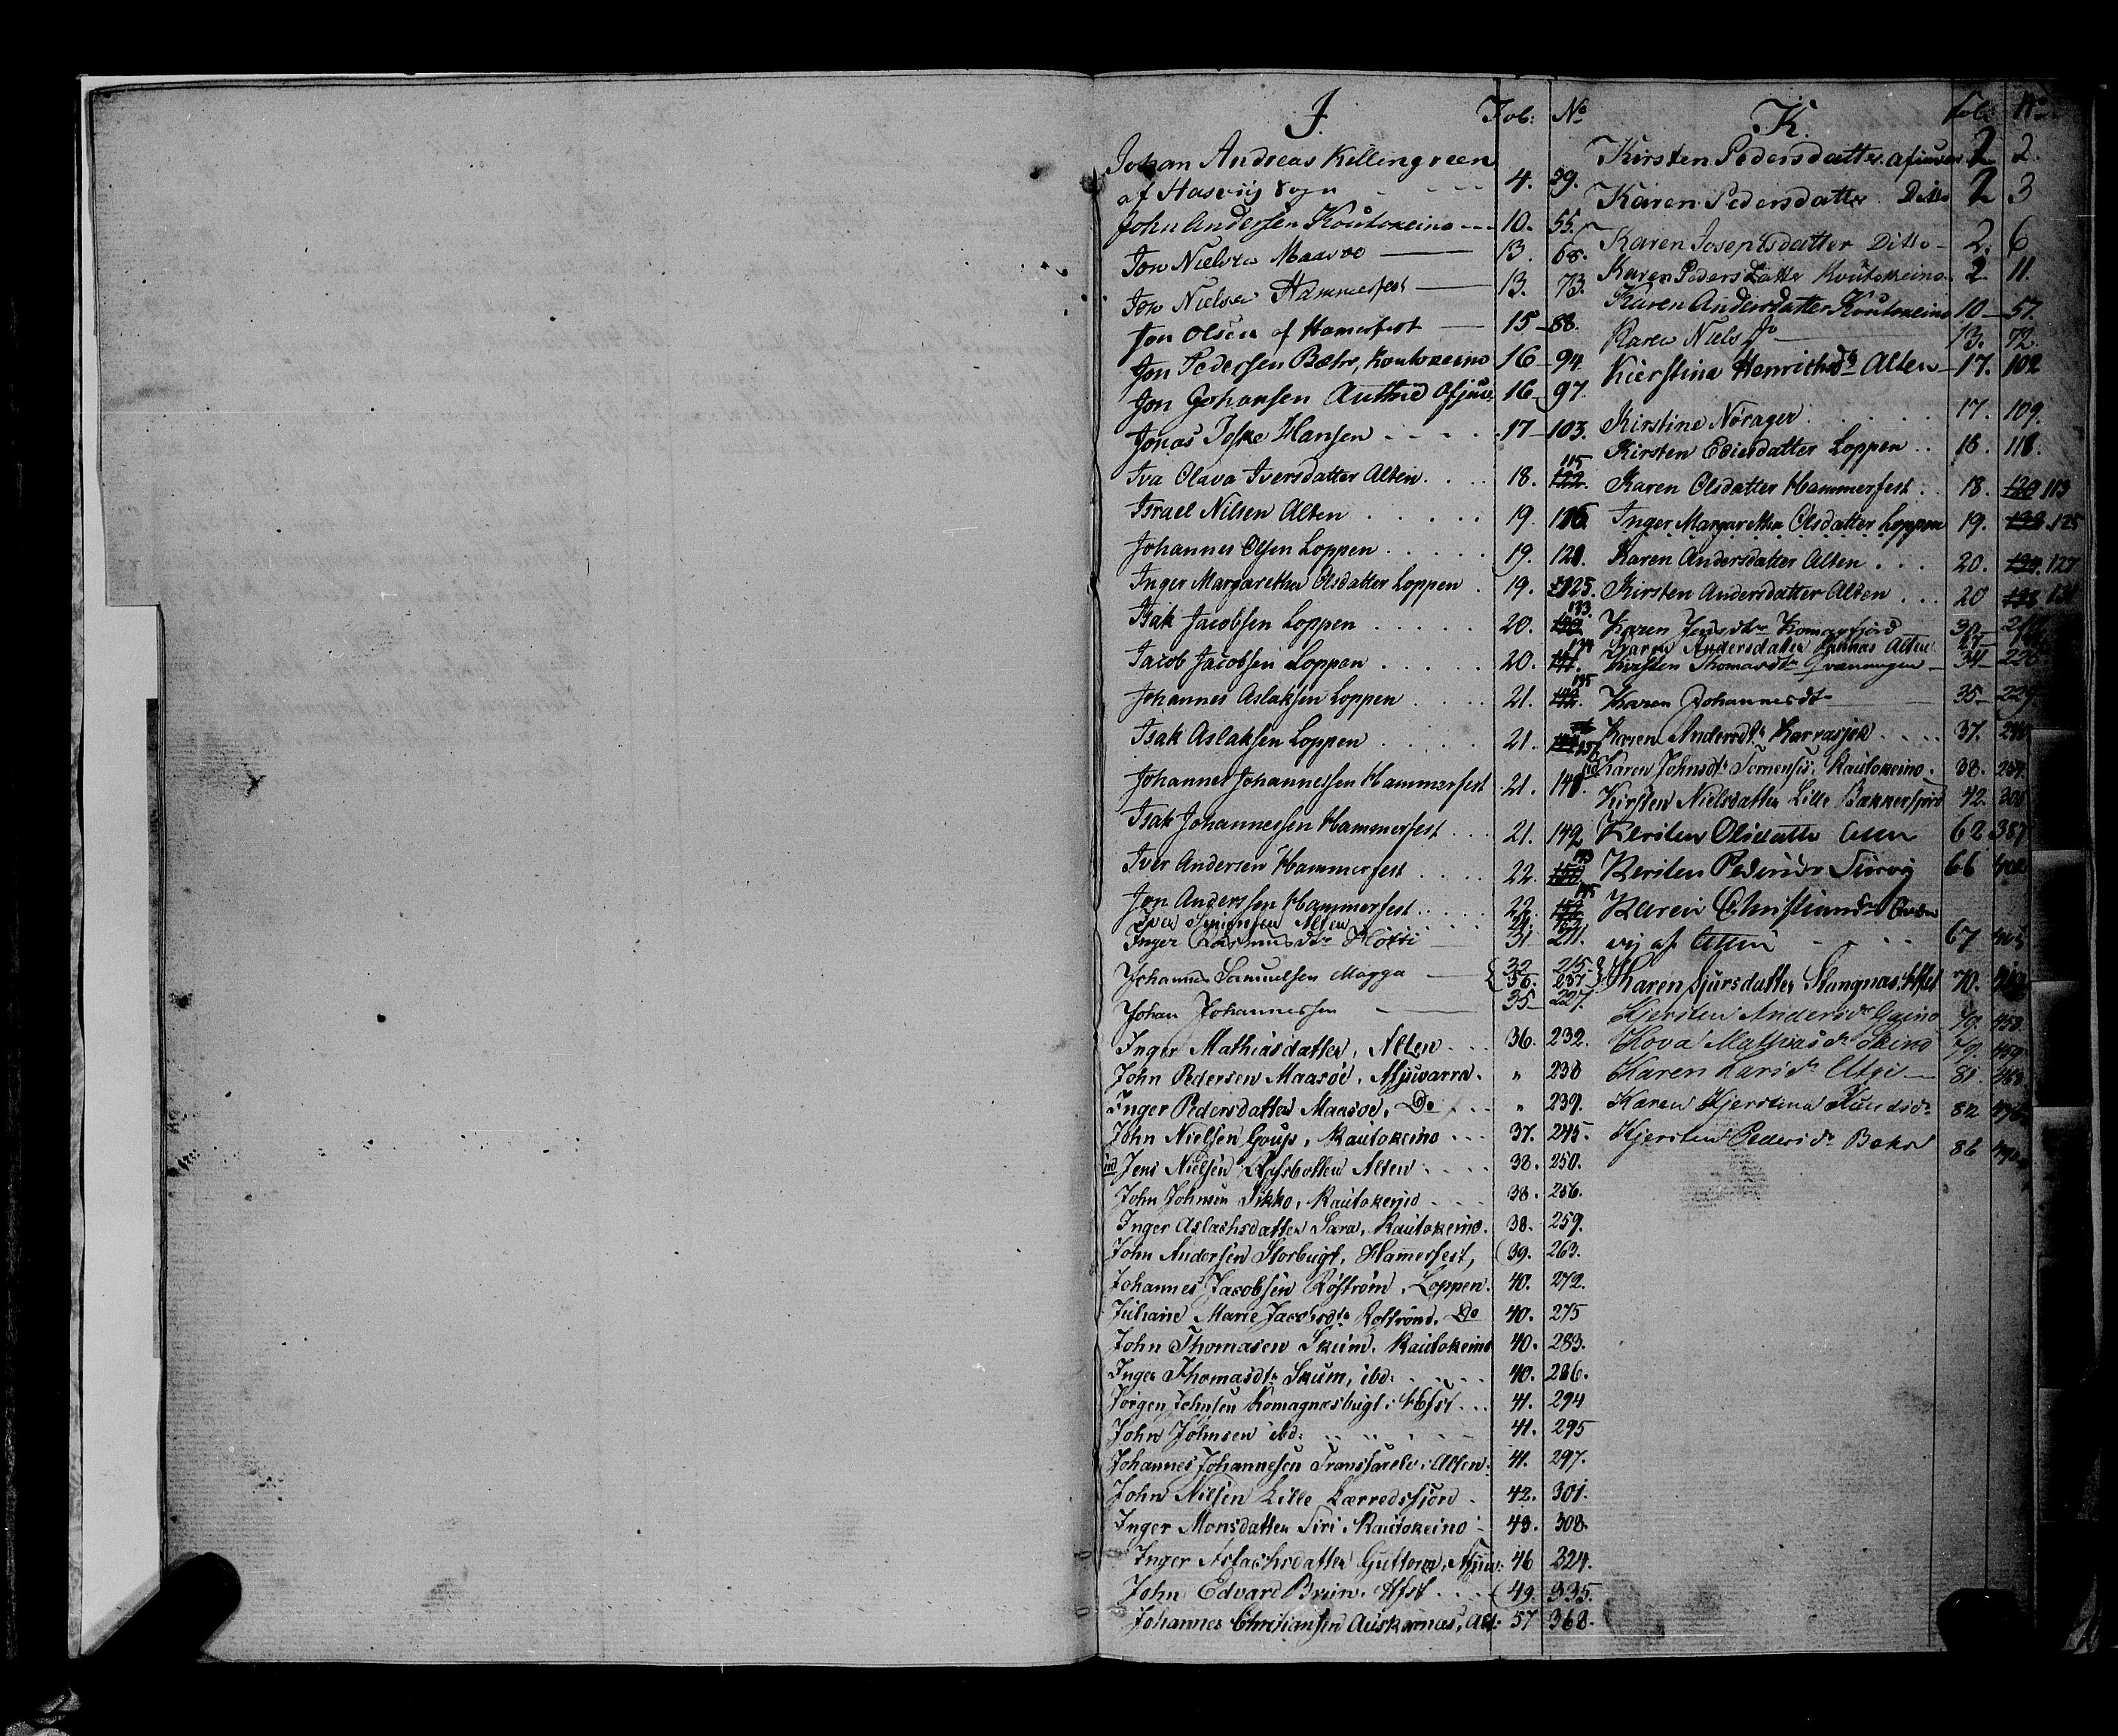 J. Fol: No
Johan Andreas Killengreen
af Hasvig Sogn - - - 4. 39.
John Andersen Koutokeino --- 10. 55.
Jon Nielsen Maasøe 13. 68.
Jon Nielsen Hammerfest 13. 73.
Jon Olsen af Hamerfest 15 - 88.
Jon Pedersen Bæhr, Koutokeino 16 - 94.
Jon Johansen Afjuv. 16 - 97.
Jonas Hansen - - - - 17 - 103.
Iva Olava Iversdatter Alten. . . . 18. 115 122.
Israel Nilsen Alten . . . . . 19. 116.
Johannes Olsen Loppen . . . . . 19. 121.
Inger Margaretha Olsdatter Loppen . 19. 125.
Isak Jacobsen Loppen . . . . . 20. 133.
Jacob Jacobsen Loppen . . . . . 20. 141.
Johannes Aslaksen Loppen . . . . 21. 135 142.
Isak Aslaksen Loppen . . . . . 21.
Johannes Johannessen Hammerfest 21. 148.
Isak Johannessen Hammerfest . . . 21. 149
Iver Andersen Hammerfest . . . . 22. 150.
Jon Anderssen Hammerfest . . . . . 22. 152.
Iver Alten . . . . .
Inger Rasmusdtr 31 - 211.
Johannes Samuelsen Magga { 32 215
56. 237 }
Johan Johannessen 35 - 227.
Inger Mathiasdatter, Alten . . . 36. 232.
John Pedersen Maasøe, Afjuvarra. " 238
Inger Pedersdatter Maasøe, Do . . . " 239.
John Nielsen Goup, Kautokeino . . . 37. 245.
ind Jens Nielsen Alten . . . . 38. 250.
John Johnsen Sikko, Kautokeino . . . 38. 256.
Inger Aslachsdatter Sara, Kautokeino. 38. 259.
John Andersen Storbugt, Hamerfest, 39. 263.
Johannes Jacobsen Loppen. 40. 272.
Juliane Marie Jacobsdtr Do 40. 275
John Thomasen Skum, Kautokeino 40. 283.
Inger Thomasdtr Skum, ibd: . . . . . 40. 286.
Jørgen Johnsen Komagnæsbugt, Hfst . . . 41. 294
John Johnsen ibd: . . . . . 41. 295
Johannes Johannesen Alten. 41. 297.
John Nilsen Lille Lærredsfjord . 42. 301.
Inger Monsdatter Siri, Kautokeino 43. 308.
Inger Aslachsdatter Guttorm, Afjuv: 46 324.
John Edvard Bruun, Hfst . . . 49. 335.
Johannes Christiansen Auskarnæs, Alt: 57 368.
K. Fol: No
Kirsten Pedersdatter Afiuvar 2 2.
Karen Pedersdatter Ditto 2 3
Karen Josephsdatter Ditto - 2. 6
Karen Pedersdatter Koutokeino. 2 11.
Karen Andersdatter Koutokeino 10 - 57.
Karen Niels Do 13. 72.
Kierstine Henrichsdtr Alten - 17. 102
Kirstine Nørager . . . . . 17. 109.
Kirsten Loppen . . 18. 118.
Karen Olsdatter Hammerfest . . 18. 120 113
Inger Margaretha Olsdatter Loppen 19. 125
Karen Andersdatter Alten . . . 20. 127
Kirsten Andersdatter Alten . . . 20 131
Karen Jensdtr Komagfjord 30
Karen Andersdatter Alten
Kirsten Thomasdtr 34 - 226
Karen Johannesdtr 35 - 229.
Karen Andersdtr Karrasjok . . . . 37. 240
ind Karen Johnsdtr Kautokeino. 38. 254.
Kirsten Nielsdatter Lille 42. 300
Kersten Olsdatter Alten 62. 387
Kersten Pedersdr 66
Karen Christiansdr
vig af Alten - - - - 67
Karen Sjursdatter Stangnæs, Hfst 70.
Kjersten Andersdr 79. 458.
Mathisdr 79. 459.
Karen Larsdr 81.
Karen Kjerstina Knudsdr 82
Kjersten Pedersdr Bæhr 86